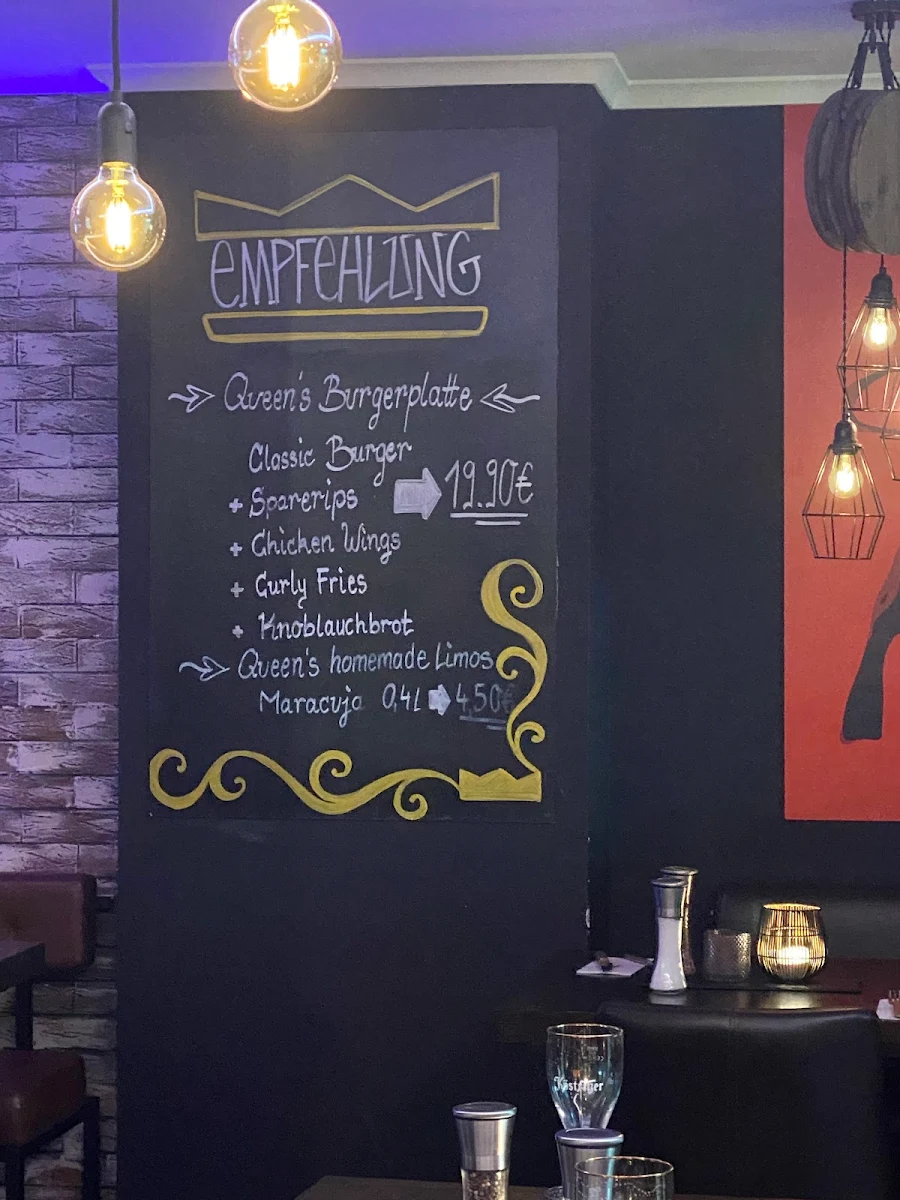 EMPFEHLUNG
Queen's Burgerplatte
Classic Burger
+ Sparerips
19.90€
+ Chicken Wings
+ Curly Fries
+ Knoblauchbrot
Queen's homemade Limos
Maracuja 0,4L 4,50€
Köstritzer